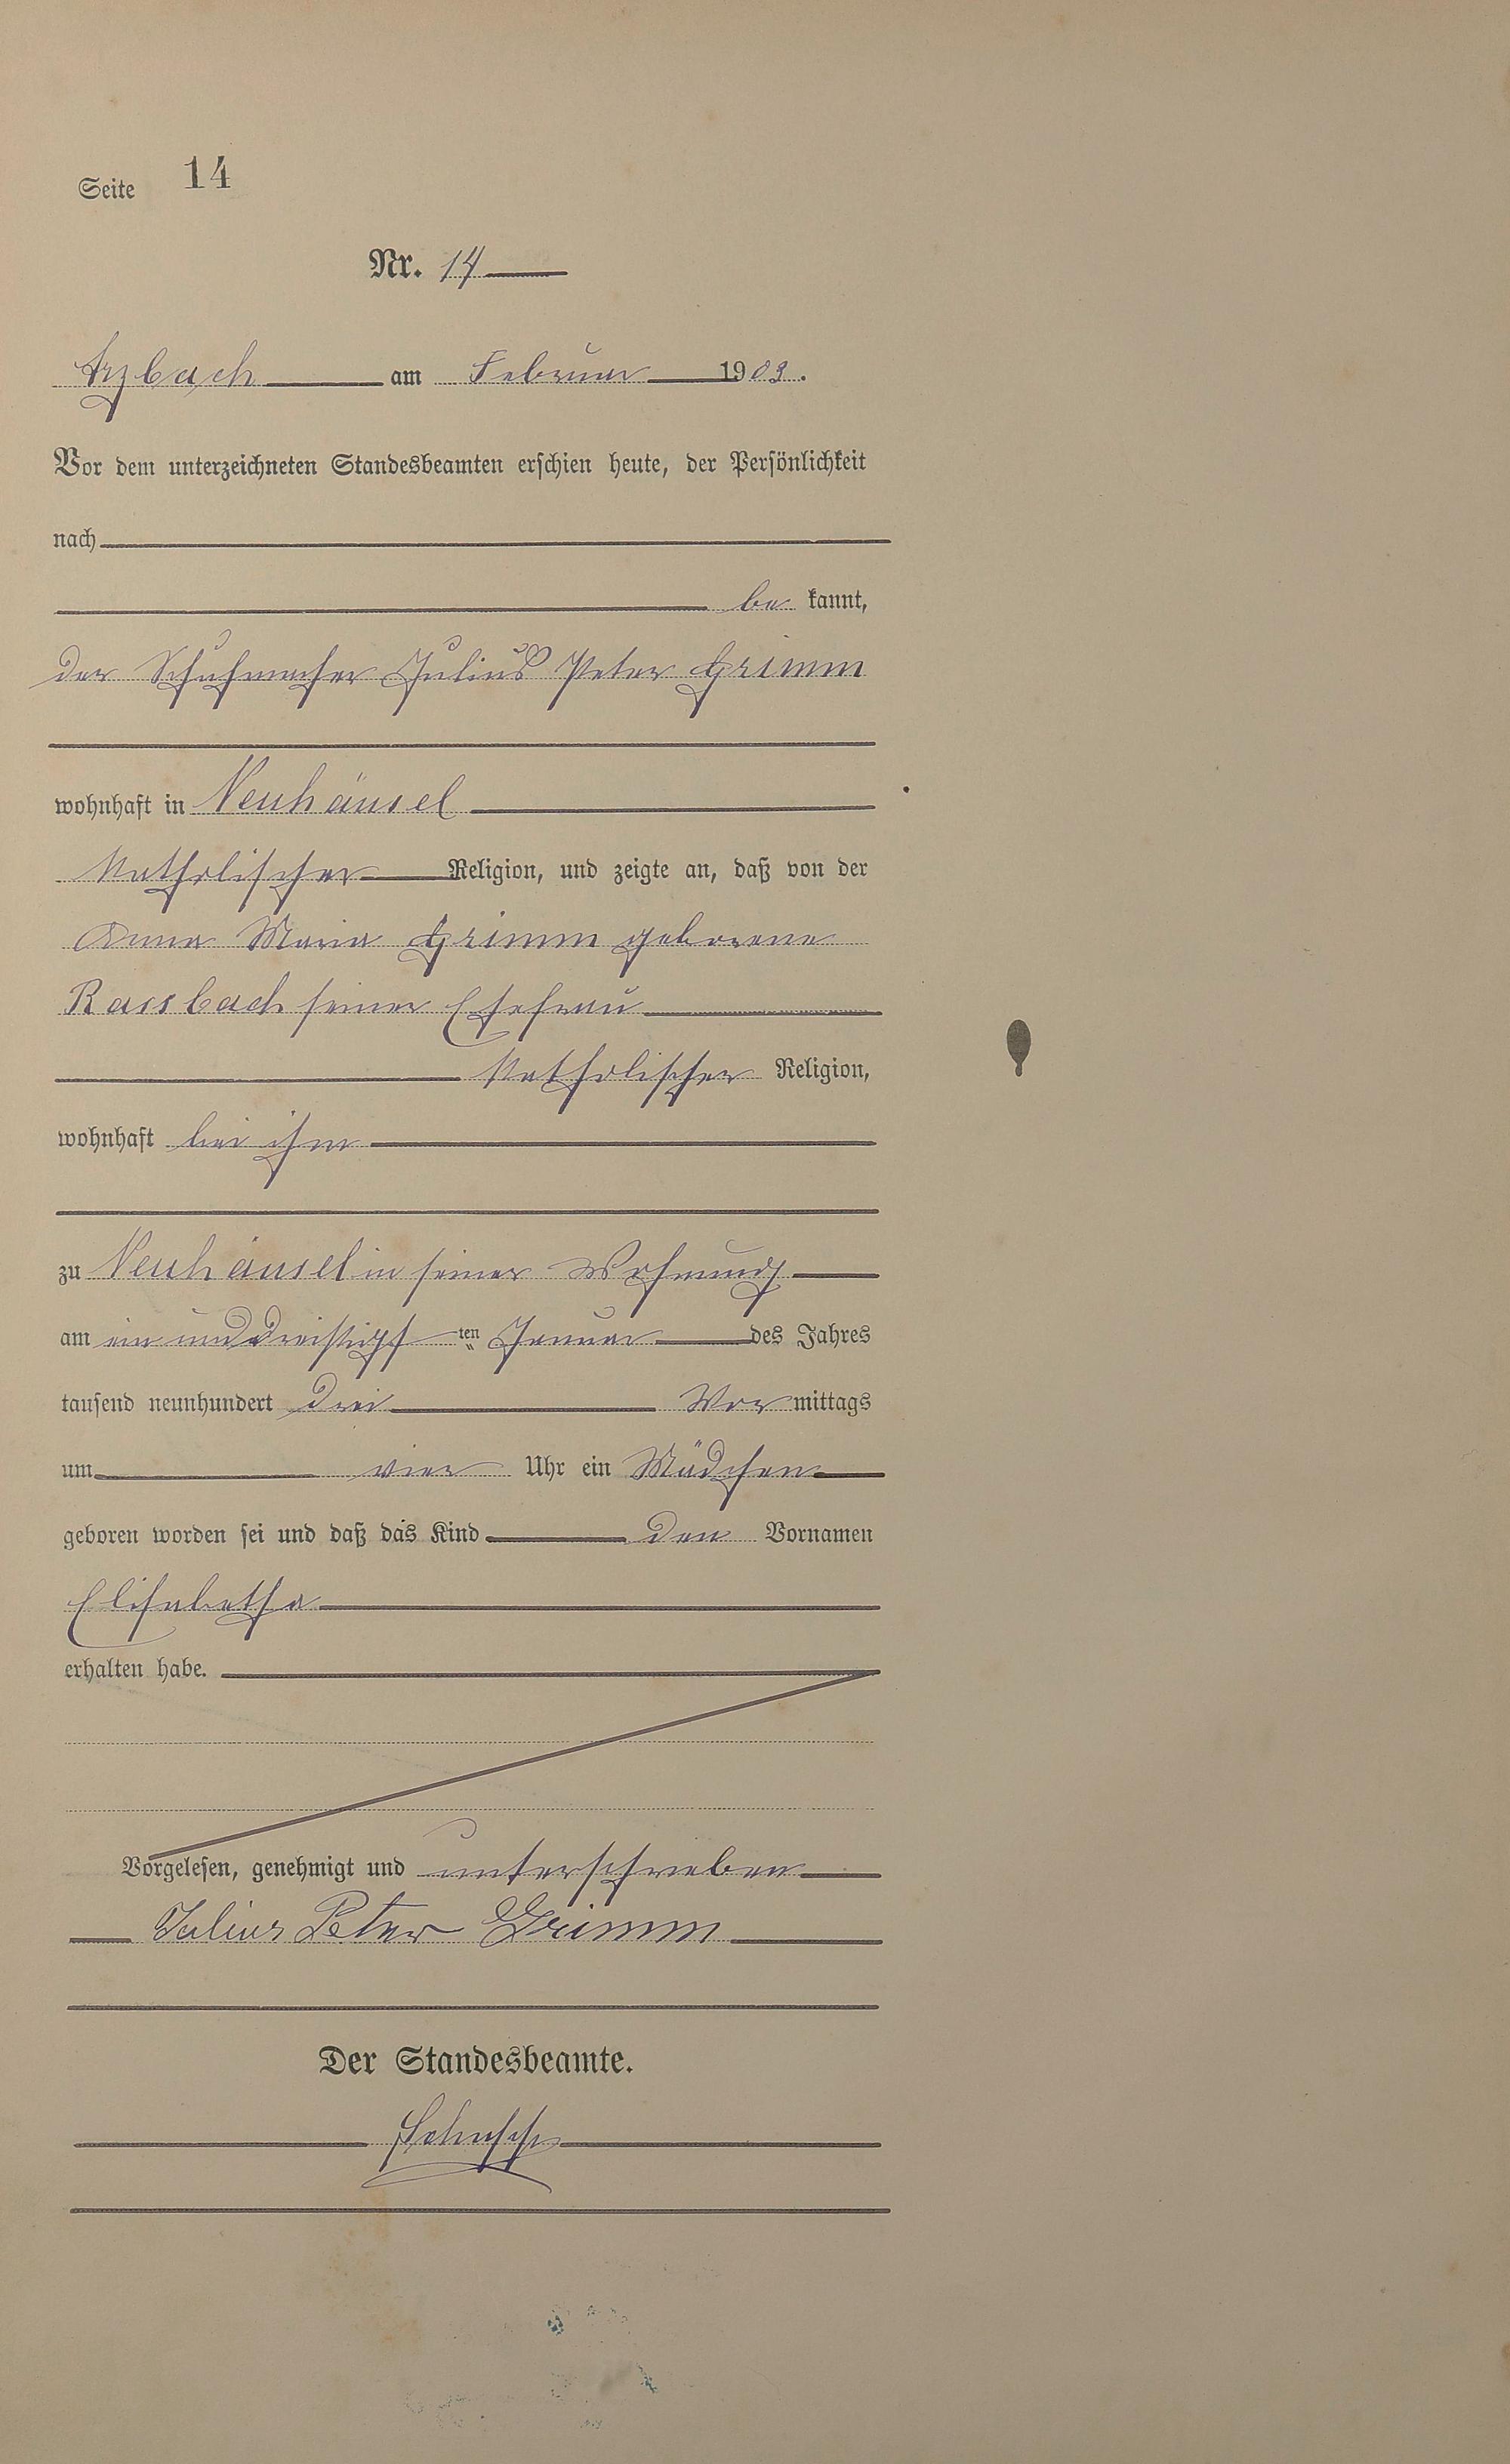 Seite 14
Nr. 14
Arzbach am Februar 1903.
Vor dem unterzeichneten Standesbeamten erschien heute, der Persönlichkeit
nach
be kannt,
der Schuhmacher Julius Peter Grimm
wohnhaft in Neuhäusel
Katholischer Religion, und zeigte an, daß von der
Anna Maria Grimm geborene
Rassbach seiner Ehefrau
Katholischer Religion,
wohnhaft bei ihm
zu Neuhäusel in seiner Wohnung
am ein und dreißigsten Januar des Jahres
tausend neunhundert drei Vor mittags
um vier Uhr ein Mädchen
geboren worden sei und daß das Kind den Vornamen
Elisabetha
erhalten habe.
Vorgelesen, genehmigt und unterschrieben
Julius Peter Grimm
Der Standesbeamte.